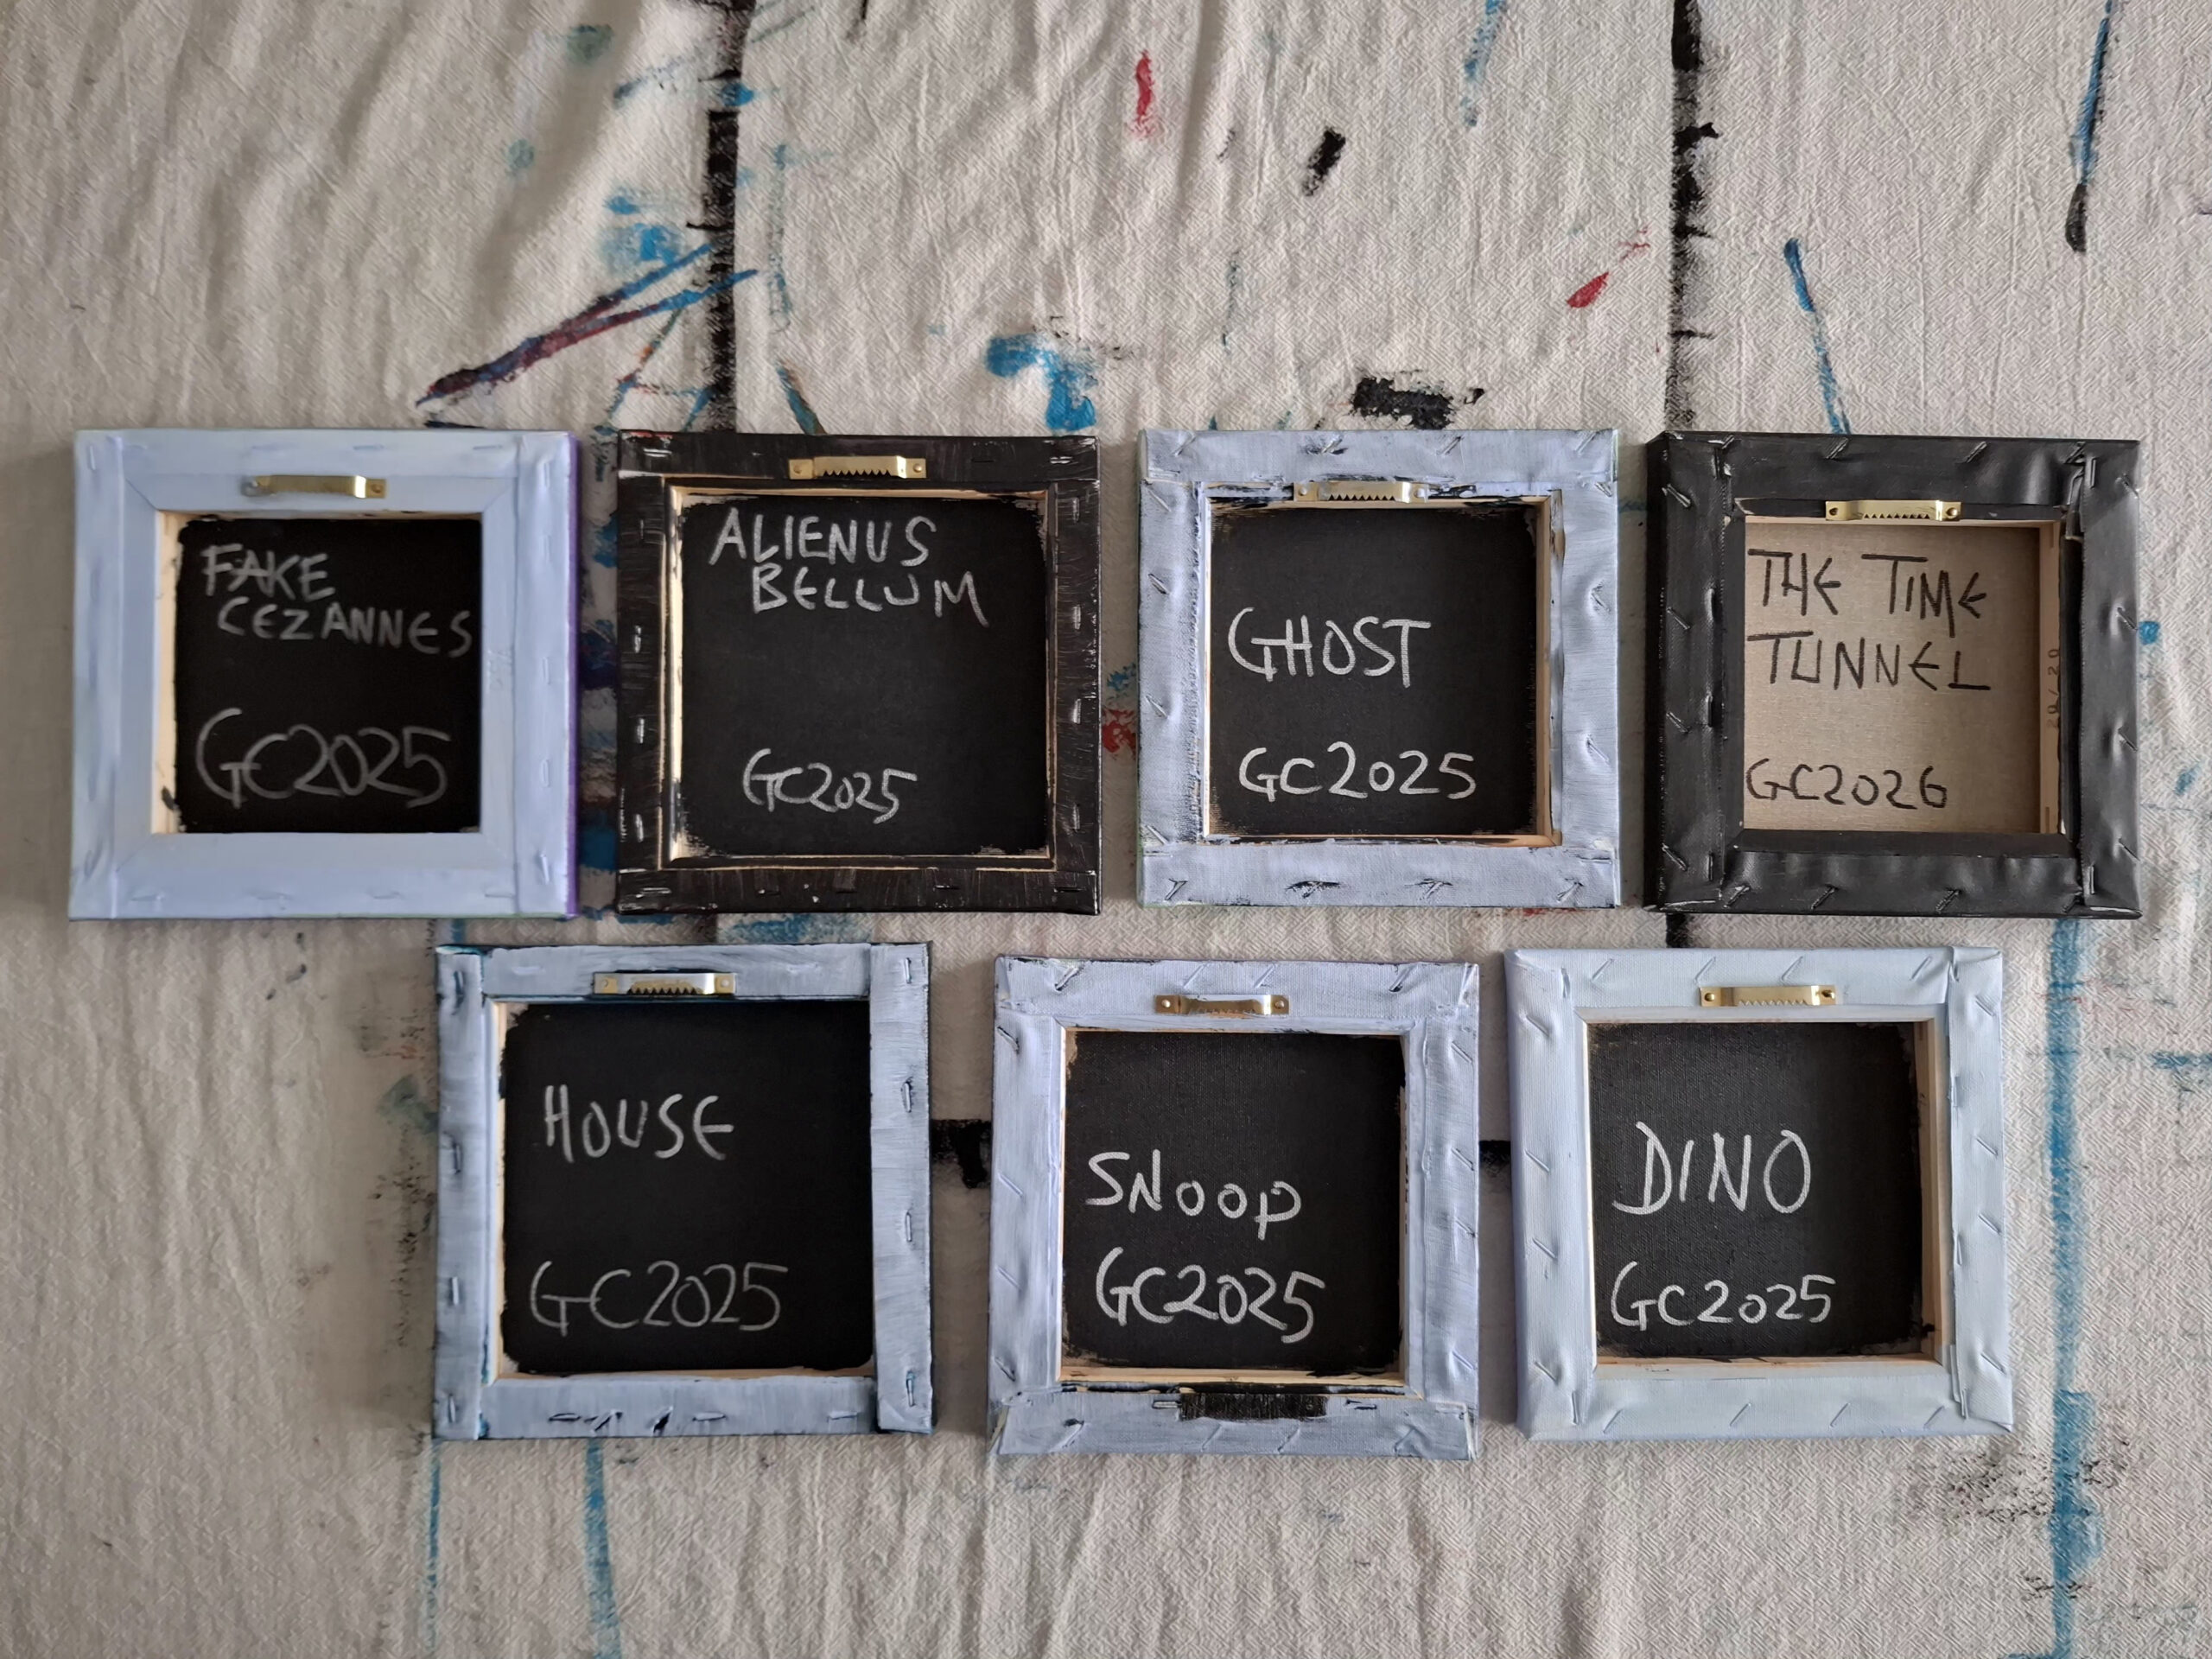 FAKE
CEZANNES
GC2025
ALIENUS
BELLUM
GC2025
GHOST
GC2025
THE TIME
TUNNEL
GC2026
20/20
HOUSE
GC2025
SNOOP
GC2025
DINO
GC2025